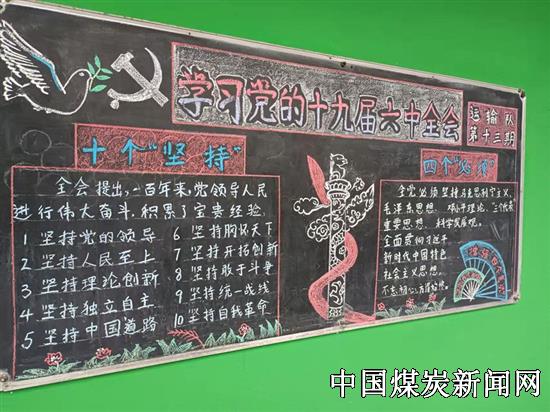 学习党的十九届六中全会
运输队
第十三期
十个"坚持"
全会提出,一百年来,党领导人民
进行伟大奋斗,积累了宝贵经验,
1 坚持党的领导
2 坚持人民至上
3 坚持理论创新
4 坚持独立自主
5 坚持中国道路
6 坚持胸怀天下
7 坚持开拓创新
8 坚持敢于斗争
9 坚持统一战线
10 坚持自我革命
四个"必须"
全党必须坚持马克思列宁主义、
毛泽东思想、邓小平理论、"三个代表"
重要思想、科学发展观。
全面贯彻习近平
新时代中国特色
社会主义思想。
不忘初心
中国煤炭新闻网